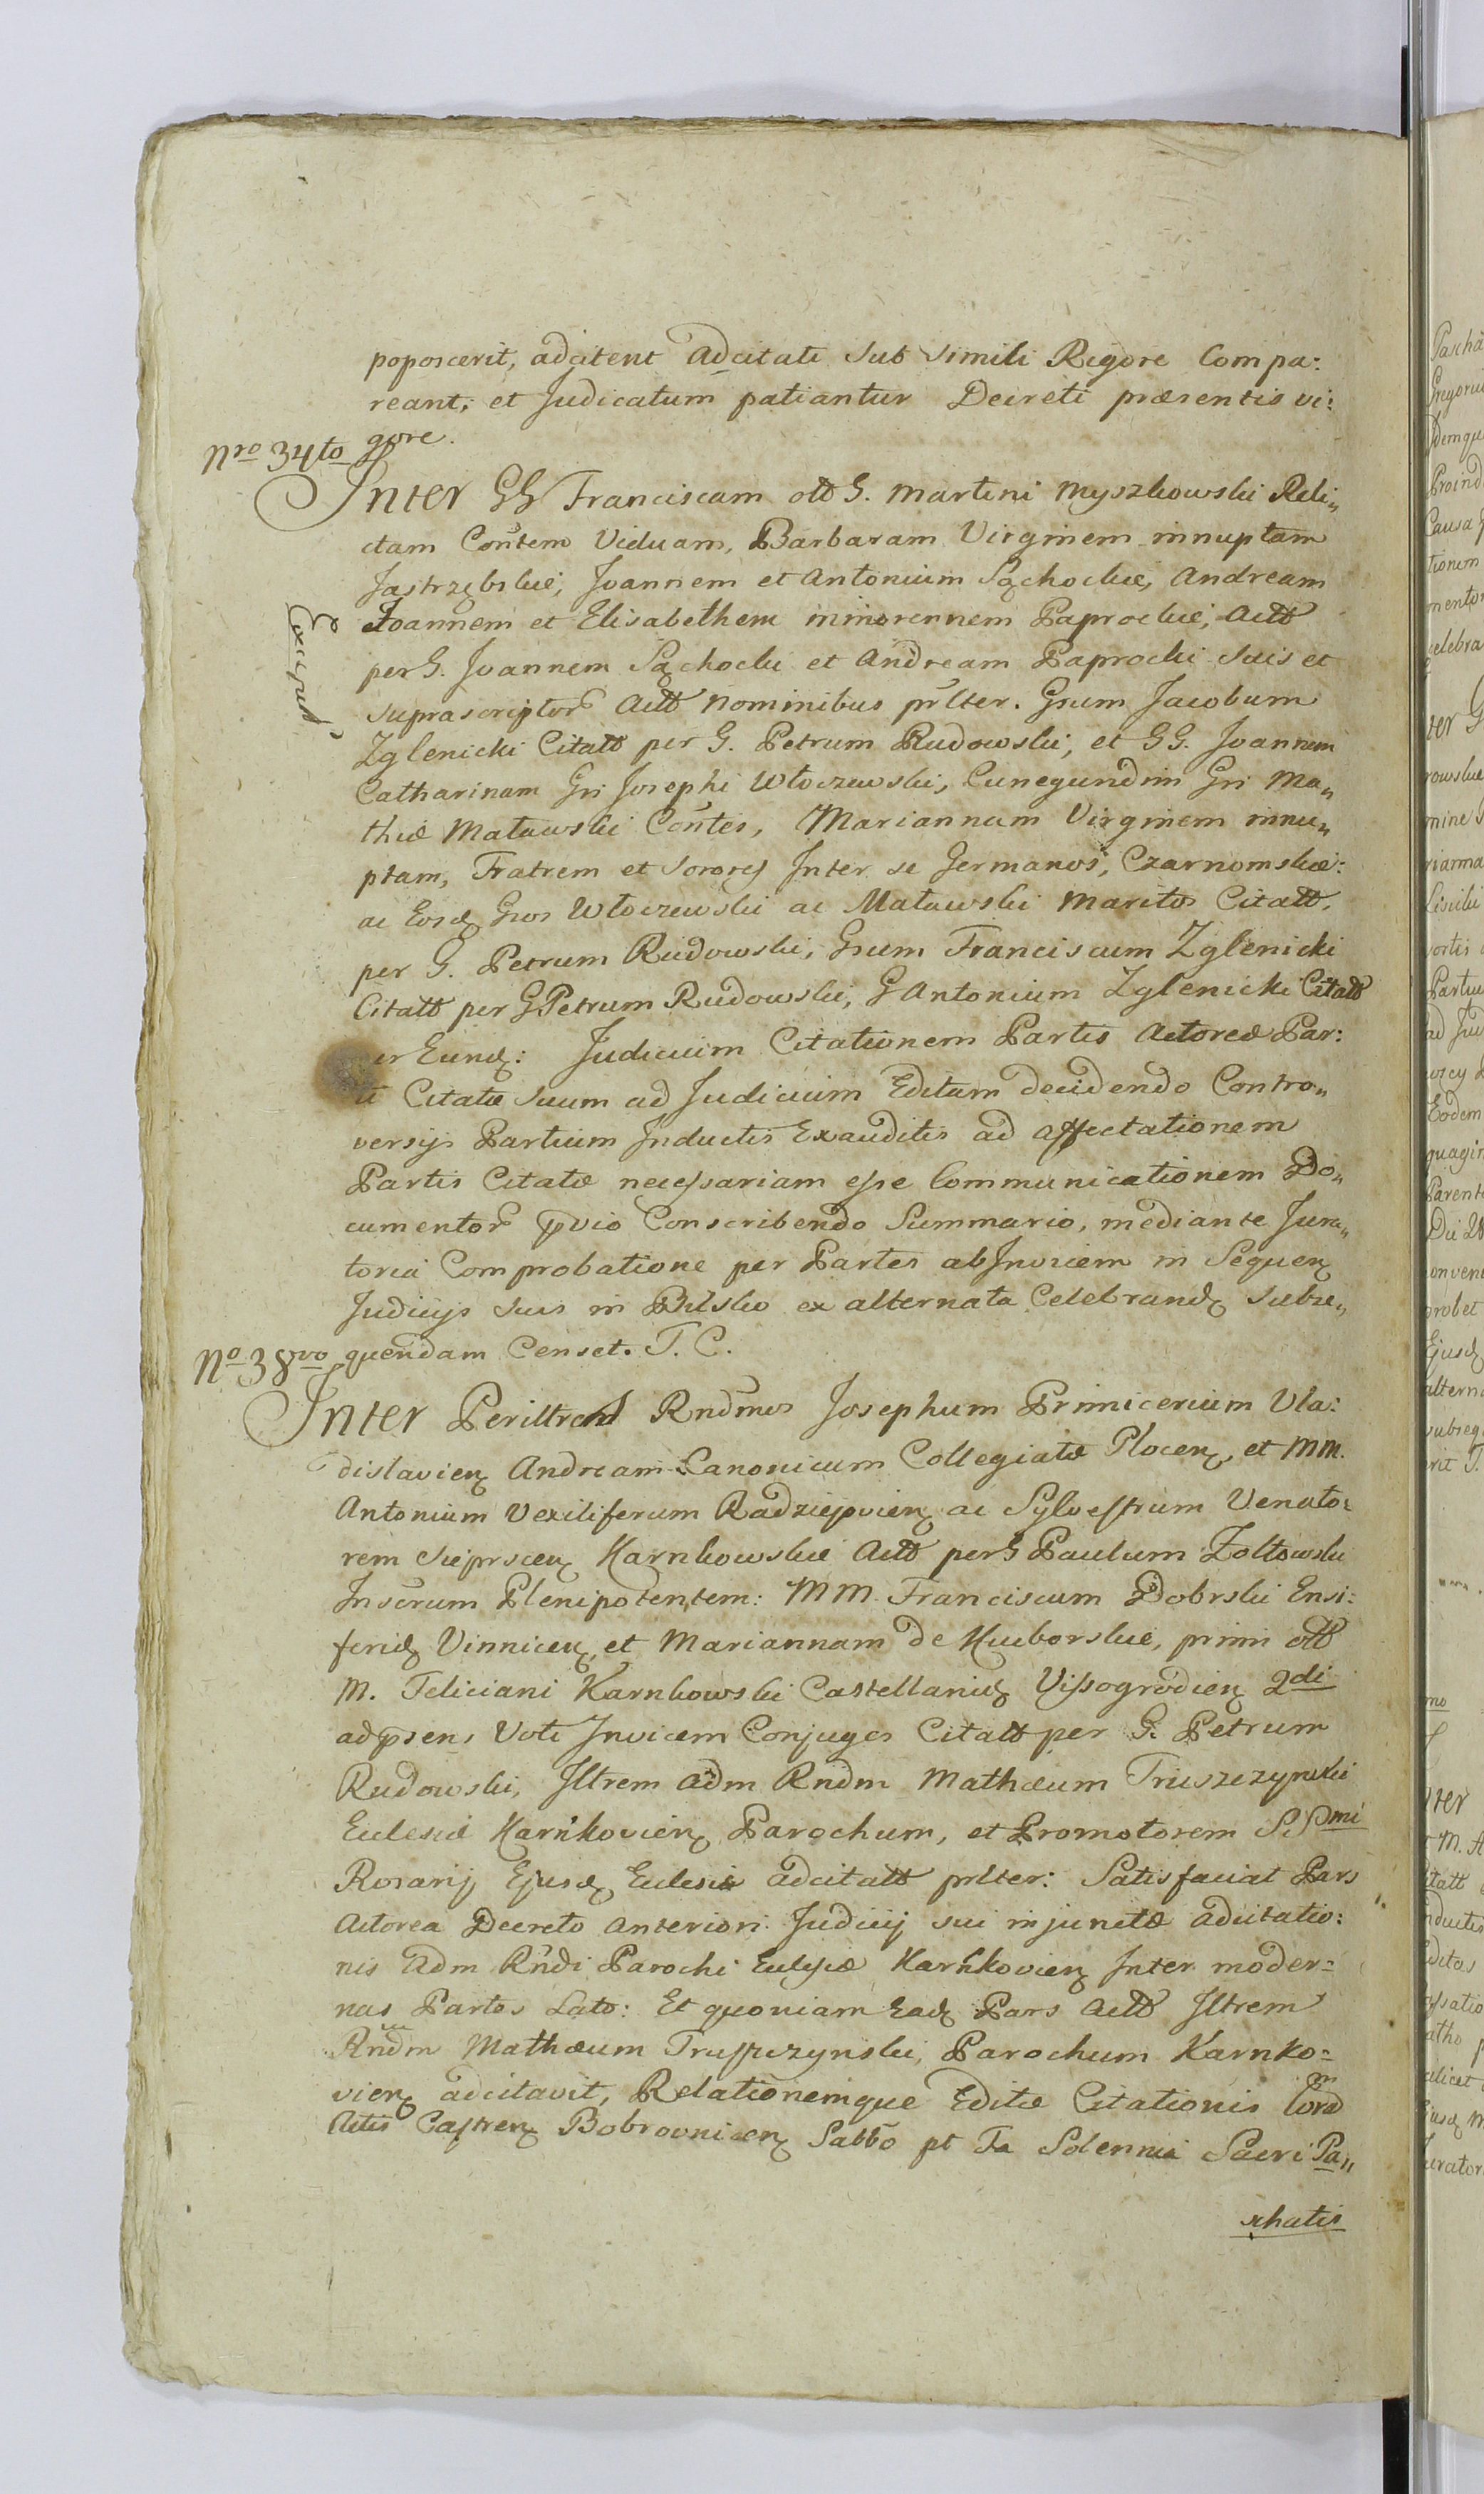 poposcerit, adcitent adcitati sub simili Rigore Compa:
reant; et Judicatum patiantur Decreti præsentis vi:
gore.
Nro 34to
Inter GG Franciscam olt G. Martini Myszkowski Reli„
ctam Contem Viduam, Barbaram Virginem innuptam
Jastrzębskie, Joannem et Antonium Sąchockie, Andream
Joannem et Elisabethem minorennem Paprockie, Actt
Excipit
per G. Joannem Sąchocki et Andream Paprocki suis et
suprascriptor Actt Nominibus prlter. Gsum Jacobum
Zglenicki Citatt per G. Petrum Rudowski, et GG. Joannem
Catharinam Gsi Josephi Włoczewski, Cunegundim Gsi Ma„
thiæ Matawski Contes, Mariannam Virginem innu„
ptam, Fratrem et Sorores Inter se Germanos, Czarnomskie:
ac Eosdꝫ Gsos Włoczewski ac Matawski Maritos Citatt.
per G. Petrum Rudowski, Gsum Franciscum Zglenicki
Citatt per G Petrum Rudowski, G Antonium Zglenicki Citatt
er Eundꝫ: Judicium Citationem Partis Actoreæ Par:
ti Citatæ suum ad Judicium Editam decidendo Contro„
versijs Partium Inductis Exauditis ad affectationem
Partis Citatæ necessariam esse Communicationem Do„
cumentor pvio Conscribendo Summario, mediante Jura„
toria Comprobatione per Partes ab Invicem in Sequenꝫ
Judicijs suis in Bilsko ex alternata Celebrandꝫ subse„
quendam Censet. T. C.
No 38vo
Inter Perilltres Rndmos Josephum Primicerium Vla:
dislavienꝫ Andream Canonicum Collegiatæ Plocenꝫ, et MM.
Antonium Vexiliferum Radziejovienꝫ ac Sylvestrum Venato:
rem Sieprscenꝫ Karnkowskie Actt per G Paulum Żółtowski
Inscrum Plenipotentem: MM. Franciscum Dobrski Ensi:
feridꝫ Vinnicenꝫ, et Mariannam de Kuiborskie, primi olt
M. Feliciani Karnkowski Castellanidꝫ Vissogrodienꝫ 2di
ad psens Voti Invicem Conjuges Citatt per G. Petrum
Rudowski, Illtrem adm Rndm Mathæum Truszczynski
Eclesiæ Karnkovienꝫ Parochum, et Promotorem S.Smi
Rosarij Ejusdꝫ Eclesiæ adcitatt prlter: Satisfaciat Pars
Actorea Decreto anteriori Judicij sui injunctæ adcitatio:
nis adm Rndi Parochi Eclesiæ Karnkovienꝫ Inter moder=
nas Partes Lato: Et quoniam Eadꝫ Pars Actt Illtrem
Rndm Mathæum Truszczynski, Parochum Karnko=
vienꝫ adcitavit, Relationemque Editæ Citationis Coram
Actis Castrenꝫ Bobrovnicenꝫ Sabbo pt Fa Solennia Sacri Pa„
schatis